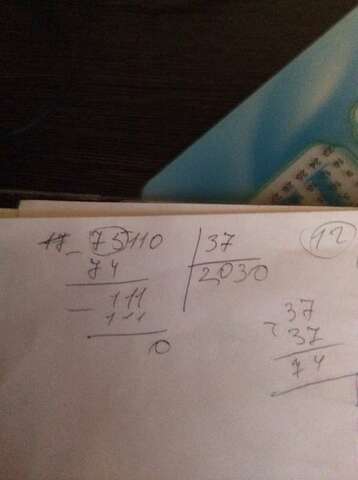 12
75110 | 37
74 | 2030
- 111
111
0
37
37
74